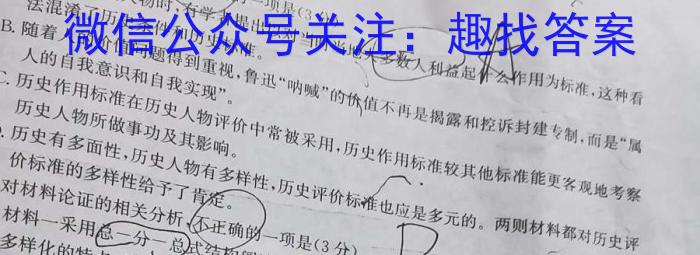 人物时,有学 提出 一项是(3分)
微信公众号关注:趣找答案
法混淆了历史 条件和历史标准。 对当时 大多数人利益起什么作用为标准,这种看
B. 随着人 价值问题得到重视,鲁迅“呐喊”的价值不再是揭露和控诉封建专制,而是“属
人的自我意识和自我实现”。
C. 历史作用标准在历史人物评价中常被采用,历史作用标准较其他标准能更客观地考察
历史人物所做事功及其影响。
历史有多面性,历史人物有多样性,历史评价标准也应是多元的。两则材料都对历史评
价标准的多样性给予了肯定。
对材料论证的相关分析,不正确的一项是(3分) D
材料一采用总—分—总式结构
多样化的特